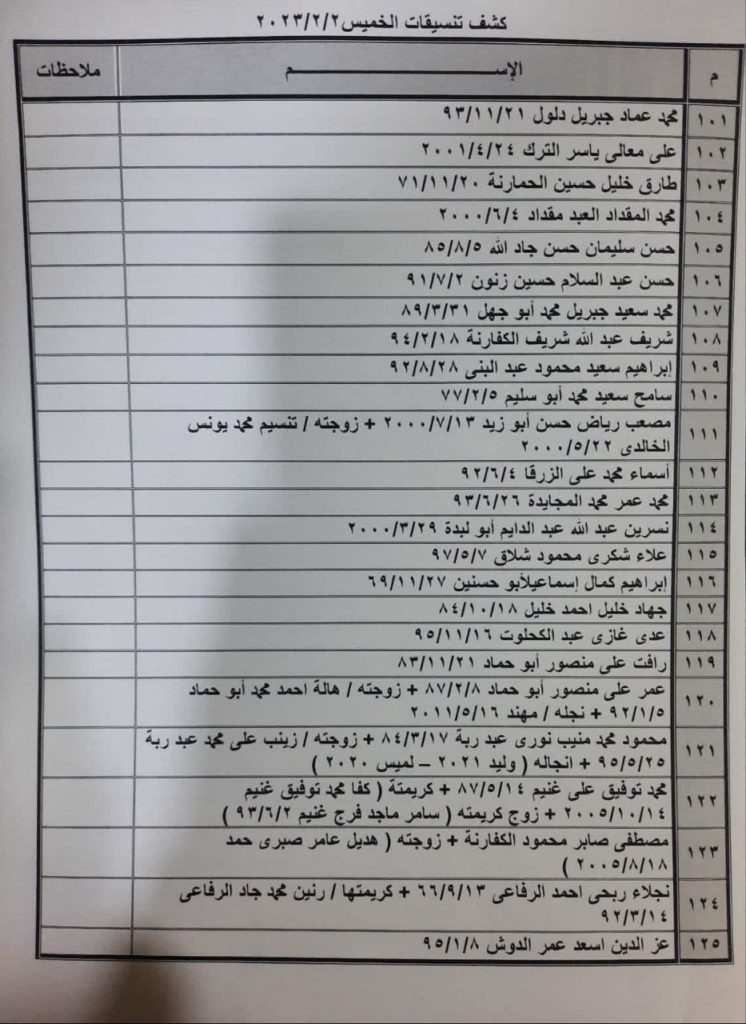 كشف تنسيقات الخميس ٢٠٢٣/٢/٢
م الإســـــم ملاحظات
١٠١ محمد عماد جبريل دلول ٩٣/١١/٢١
١٠٢ على معالى ياسر الترك ٢٠٠١/٤/٢٤
١٠٣ طارق خليل حسين الحمارنة ٧١/١١/٢٠
١٠٤ محمد المقداد العبد مقداد ٢٠٠٠/٦/٤
١٠٥ حسن سليمان حسن جاد الله ٨٥/٨/٥
١٠٦ حسن عبد السلام حسين زنون ٩١/٧/٢
١٠٧ محمد سعيد جبريل محمد أبو جهل ٨٩/٣/٣١
١٠٨ شريف عبد الله شريف الكفارنة ٩٤/٢/١٨
١٠٩ إبراهيم سعيد محمود عبد البنى ٩٢/٨/٢٨
١١٠ سامح سعيد محمد أبو سليم ٧٧/٢/٥
١١١ مصعب رياض حسن أبو زيد ٢٠٠٠/٧/١٣ + زوجته / تنسيم محمد يونس
الخالدى ٢٠٠٠/٥/٢٢
١١٢ أسماء محمد على الزرقا ٩٢/٦/٤
١١٣ محمد عمر محمد المجايدة ٩٣/٦/٢٦
١١٤ نسرين عبد الله عبد الدايم أبو لبدة ٢٠٠٠/٣/٢٩
١١٥ علاء شكرى محمود شلاق ٩٧/٥/٧
١١٦ إبراهيم كمال إسماعيلأبو حسنين ٦٩/١١/٢٧
١١٧ جهاد خليل احمد خليل ٨٤/١٠/١٨
١١٨ عدى غازى عبد الكحلوت ٩٥/١١/١٦
١١٩ رافت على منصور أبو حماد ٨٣/١١/٢١
١٢٠ عمر على منصور أبو حماد ٨٧/٢/٨ + زوجته / هالة احمد محمد أبو حماد
٩٢/١/٥ + نجله / مهند ٢٠١١/٥/١٦
١٢١ محمود محمد منيب نورى عبد ربة ٨٤/٣/١٧ + زوجته / زينب على محمد عبد ربة
٩٥/٥/٢٥ + انجاله ( وليد ٢٠٢١ – لميس ٢٠٢٠ )
١٢٢ محمد توفيق على غنيم ٨٧/٥/١٤ + كريمتة ( كفا محمد توفيق غنيم
٢٠٠٥/١٠/١٤ + زوج كريمته ( سامر ماجد فرج غنيم ٩٣/٦/٢ )
١٢٣ مصطفى صابر محمود الكفارنة + زوجته ( هديل عامر صبرى حمد
٢٠٠٥/٨/١٨ )
١٢٤ نجلاء ربحى احمد الرفاعى ٦٦/٩/١٣ + كريمتها / رنين محمد جاد الرفاعى
٩٢/٣/١٤
١٢٥ عز الدين اسعد عمر الدوش ٩٥/١/٨